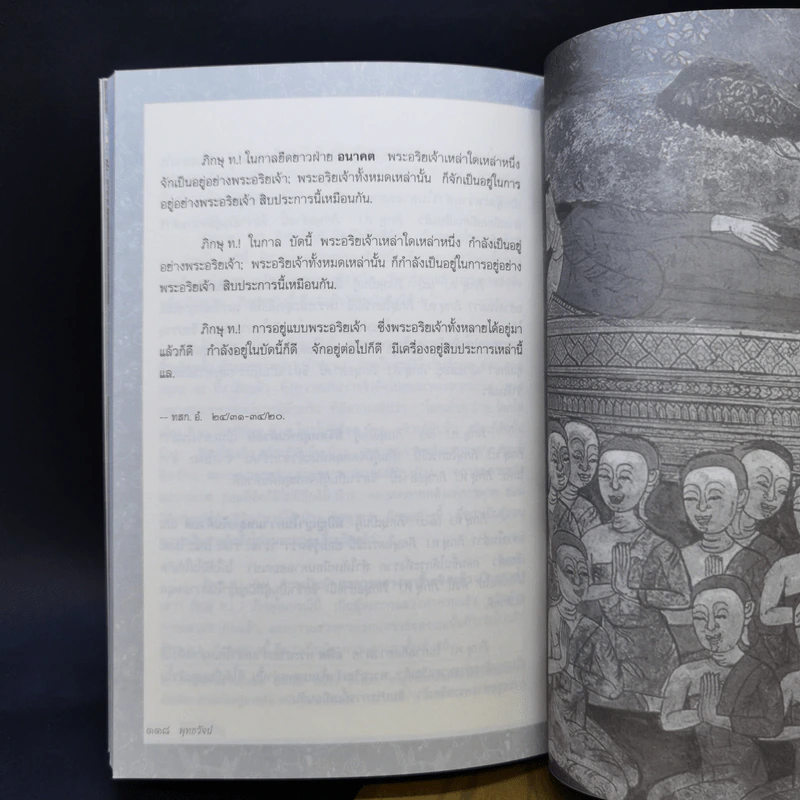 ภิกษุ ท.! ในกาลยืดยาวฝ่าย อนาคต พระอริยเจ้าเหล่าใดเหล่าหนึ่ง
จักเป็นอยู่อย่างพระอริยเจ้า; พระอริยเจ้าทั้งหมดเหล่านั้น ก็จักเป็นอยู่ในการ
อยู่อย่างพระอริยเจ้า สิบประการนี้เหมือนกัน.
ภิกษุ ท.! ในกาล บัดนี้ พระอริยเจ้าเหล่าใดเหล่าหนึ่ง กำลังเป็นอยู่
อย่างพระอริยเจ้า; พระอริยเจ้าทั้งหมดเหล่านั้น ก็กำลังเป็นอยู่ในการอยู่อย่าง
พระอริยเจ้า สิบประการนี้เหมือนกัน.
ภิกษุ ท.! การอยู่แบบพระอริยเจ้า ซึ่งพระอริยเจ้าทั้งหลายได้อยู่มา
แล้วก็ดี กำลังอยู่ในบัดนี้ก็ดี จักอยู่ต่อไปก็ดี มีเครื่องอยู่สิบประการเหล่านี้
แล.
-- ทสก. อํ. ๒๔/๓๑-๓๔/๒๐.
๓๓๘ พุทธวจน